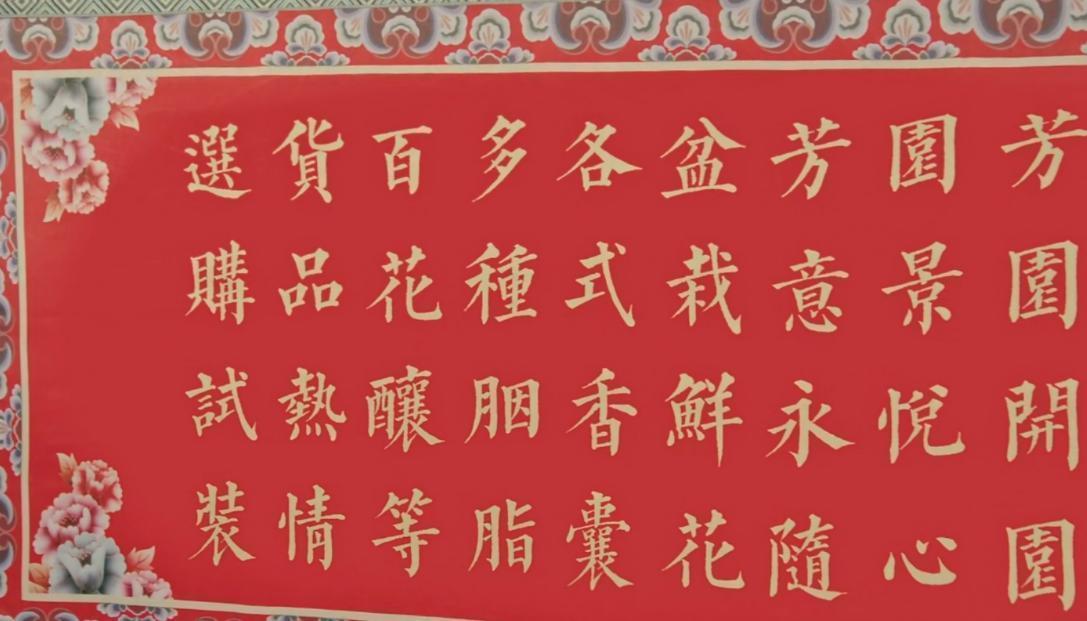 芳園開園
園景悅心
芳意永隨
盆栽鮮花
各式香囊
多種胭脂
百花釀等
貨品熱情
選購試裝